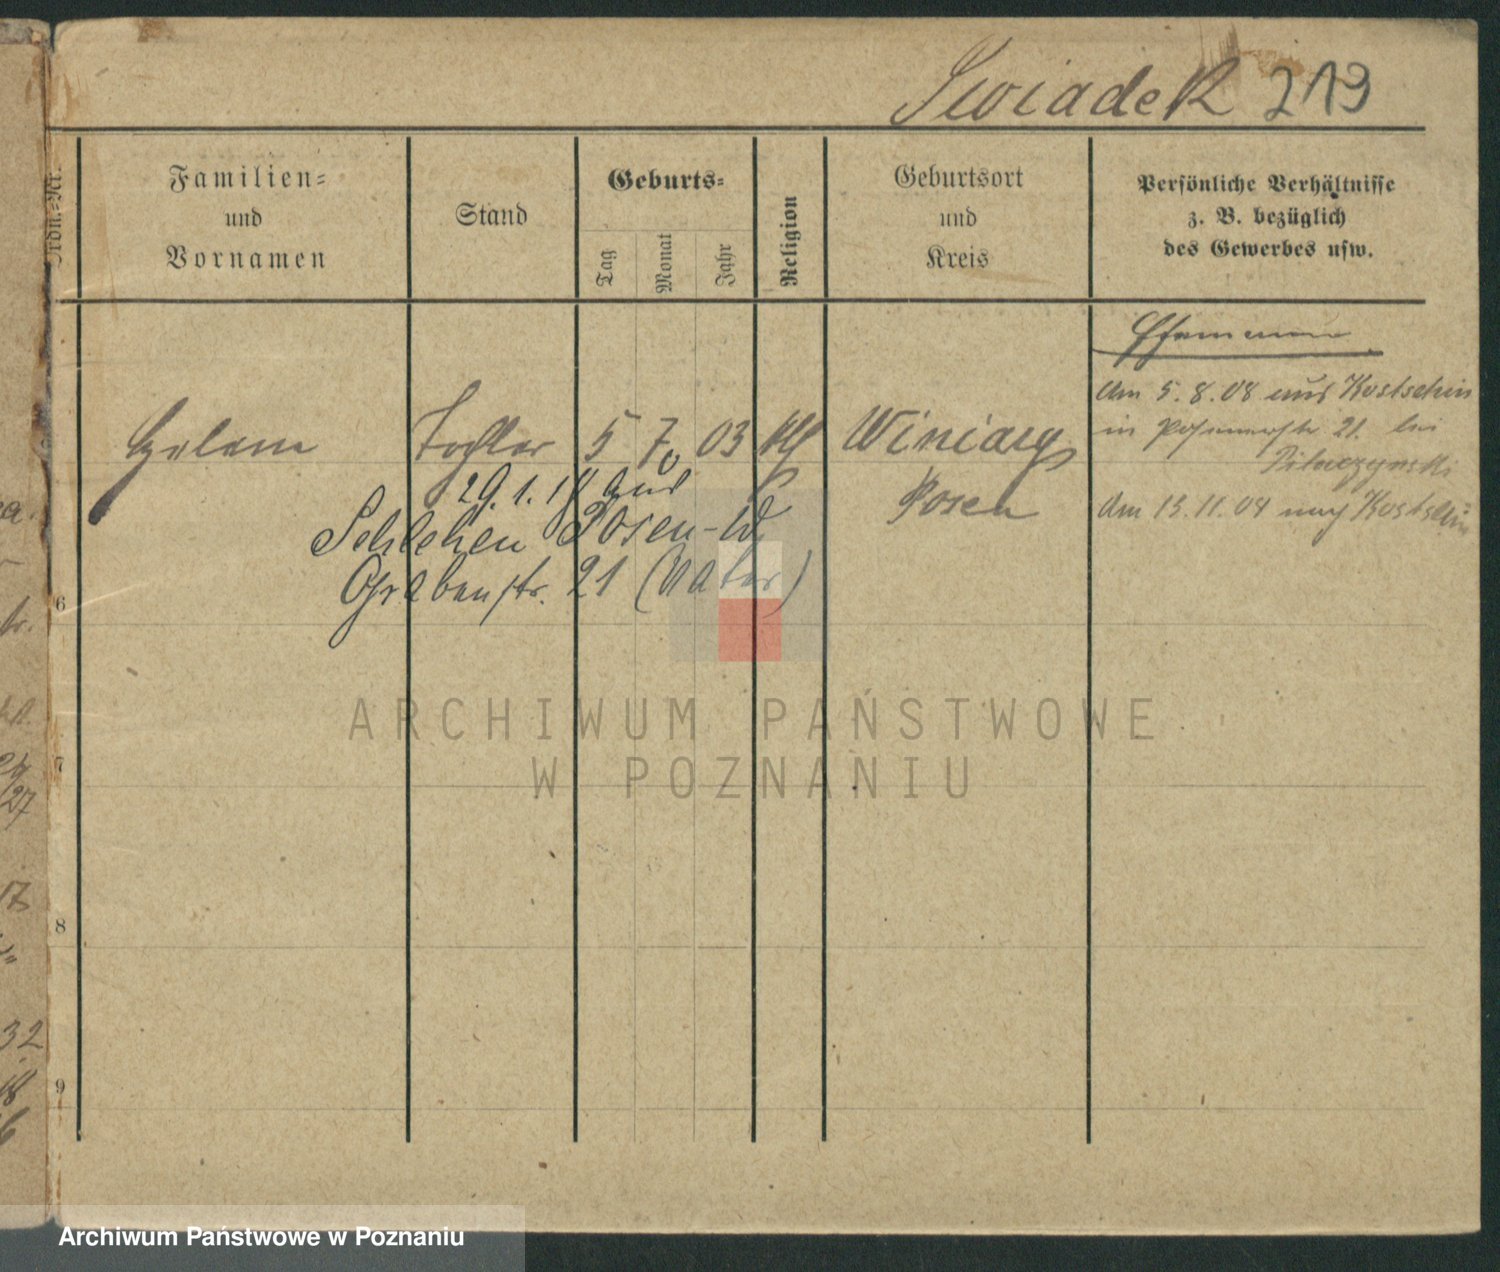 Swiadek 219
Ordn.-Nr.
Familien-
und
Vornamen
Stand
Geburts-
Tag
Monat
Jahr
Religion
Geburtsort
und
Kreis
Persönliche Verhältnisse
z. B. bezüglich
des Gewerbes usw.
Ehemann
Am 5.8.08 aus Kostschin
in Posenerstr 21. bei
Helene Tochter 5 7. 03 kth Winiary
Am 15.11.08 nach Kostschin
Posen
29.1.18 aus
Schlehen Posen-W.
Grabenstr. 21 (Vater)
6
7
8
9
ARCHIWUM PAŃSTWOWE
W POZNANIU
Archiwum Państwowe w Poznaniu